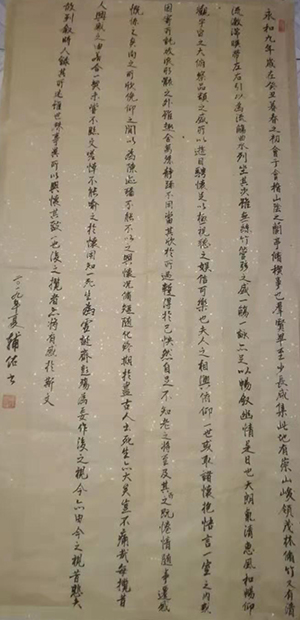 永和九年歲在癸丑暮春之初會于會稽山陰之蘭亭脩稧事也羣賢畢至少長咸集此地有崇山峻領茂林脩竹又有清
流激湍暎帶左右引以為流觴曲水列坐其次雖無絲竹管弦之盛一觴一詠亦足以暢叙幽情是日也天朗氣清惠風和暢仰
觀宇宙之大俯察品類之盛所以遊目騁懷足以極視聽之娛信可樂也夫人之相與俯仰一世或取諸懷抱悟言一室之內或
因寄所託放浪形骸之外雖趣舍萬殊靜躁不同當其欣於所遇蹔得於己怏然自足不知老之將至及其所之既惓情隨事遷感
慨係之矣向之所欣俛仰之閒以為陳迹猶不能不以之興懷況脩短隨化終期於盡古人云死生亦大矣豈不痛哉每攬昔
人興感之由若合一契未嘗不臨文嗟悼不能喻之於懷固知一死生為虛誕齊彭殤為妄作後之視今亦由今之視昔悲夫
故列叙時人錄其所述雖世殊事異所以興懷其致一也後之攬者亦將有感於斯文
二〇一九年夏